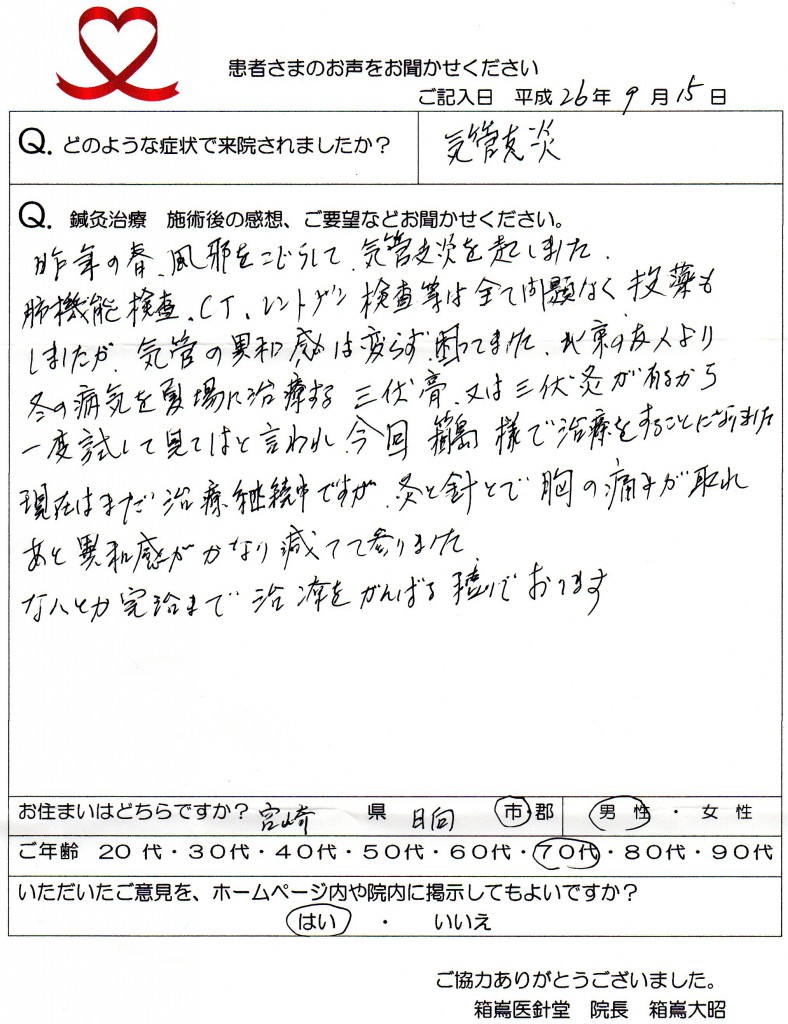 患者さまのお声をお聞かせください
ご記入日 平成26年9月15日
Q. どのような症状で来院されましたか？
気管支炎
Q. 鍼灸治療 施術後の感想、ご要望などお聞かせください。
昨年の春、風邪をこじらして、気管支炎を起しました。
肺機能検査、CT、レントゲン検査等は全て問題なく、投薬も
しましたが、気管の異和感は変らず、困ってました、北京の友人より
冬の病気を夏場に治療する三伏膏、又は三伏灸が有るから
一度試して見てはと言われ、今回 箱嶌様で治療をすることになりました
現在はまだ治療継続中ですが、灸と針とで胸の痛みが取れ
あと異和感がかなり減って参りました
なんとか完治まで治療をがんばる積りでおります
お住まいはどちらですか？ 宮崎 県 日向 市・郡 男性・女性
ご年齢 20代・30代・40代・50代・60代・70代・80代・90代
いただいたご意見を、ホームページ内や院内に掲示してもよいですか？
はい ・ いいえ
ご協力ありがとうございました。
箱嶌医針堂 院長 箱嶌大昭